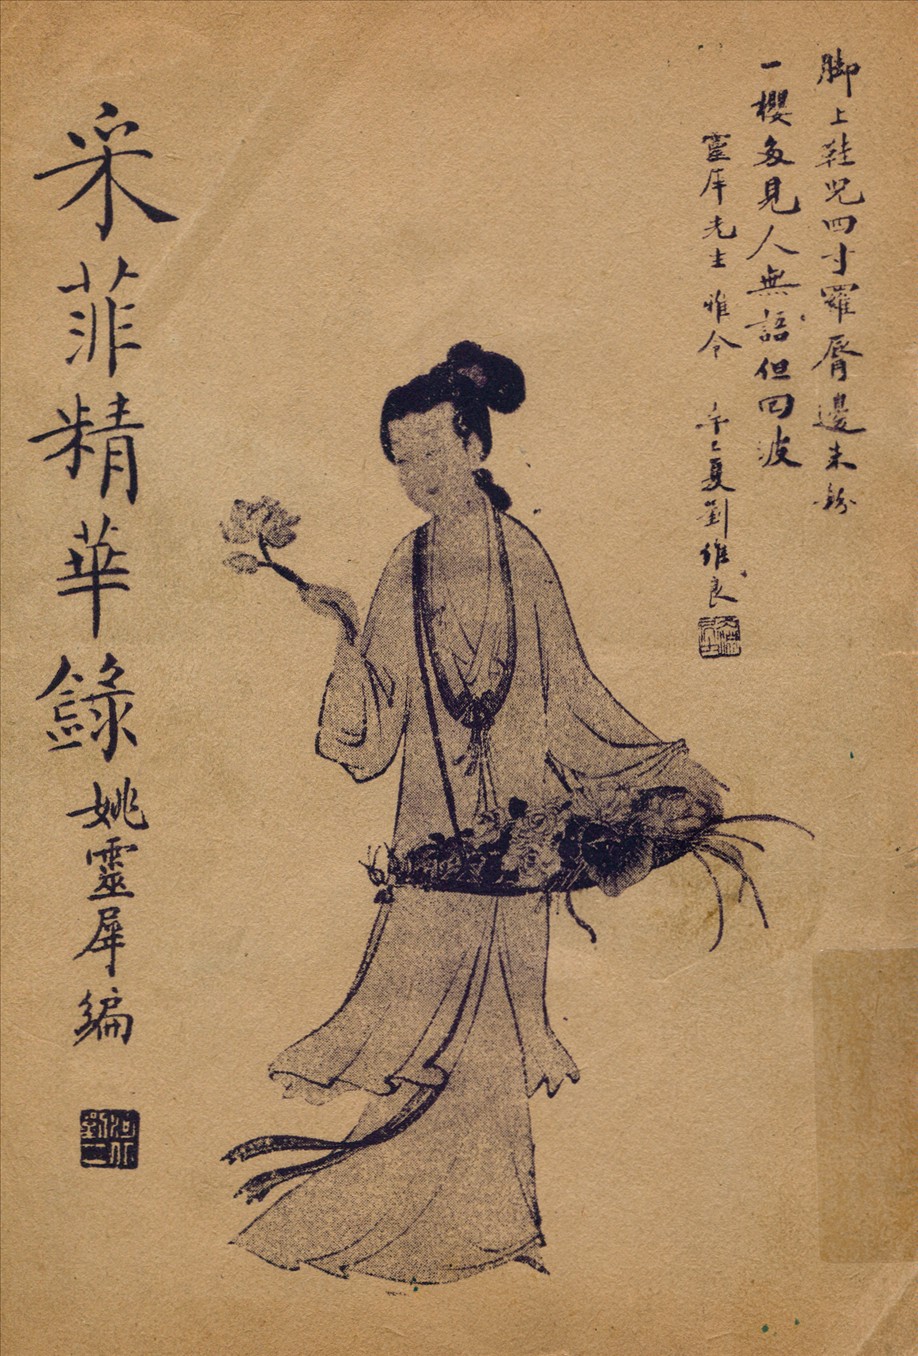 脚上鞋兒四寸羅脣邊朱粉
一櫻多見人無語但回波
靈犀先生雅令　辛巳夏劉維良
采菲精華錄
姚靈犀編